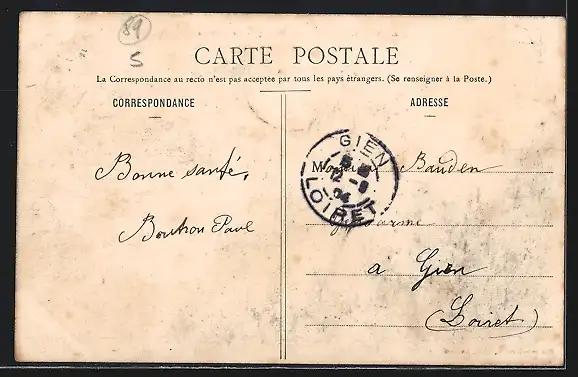 89
S
CARTE POSTALE
La Correspondance au recto n'est pas acceptée par tous les pays étrangers. (Se renseigner à la Poste.)
CORRESPONDANCE
ADRESSE
Bonne santé,
Bouhou Paul
GIEN
12 - 9
04
LOIRET
Monsieur Bauden
gendarme
à Gien
(Loiret)